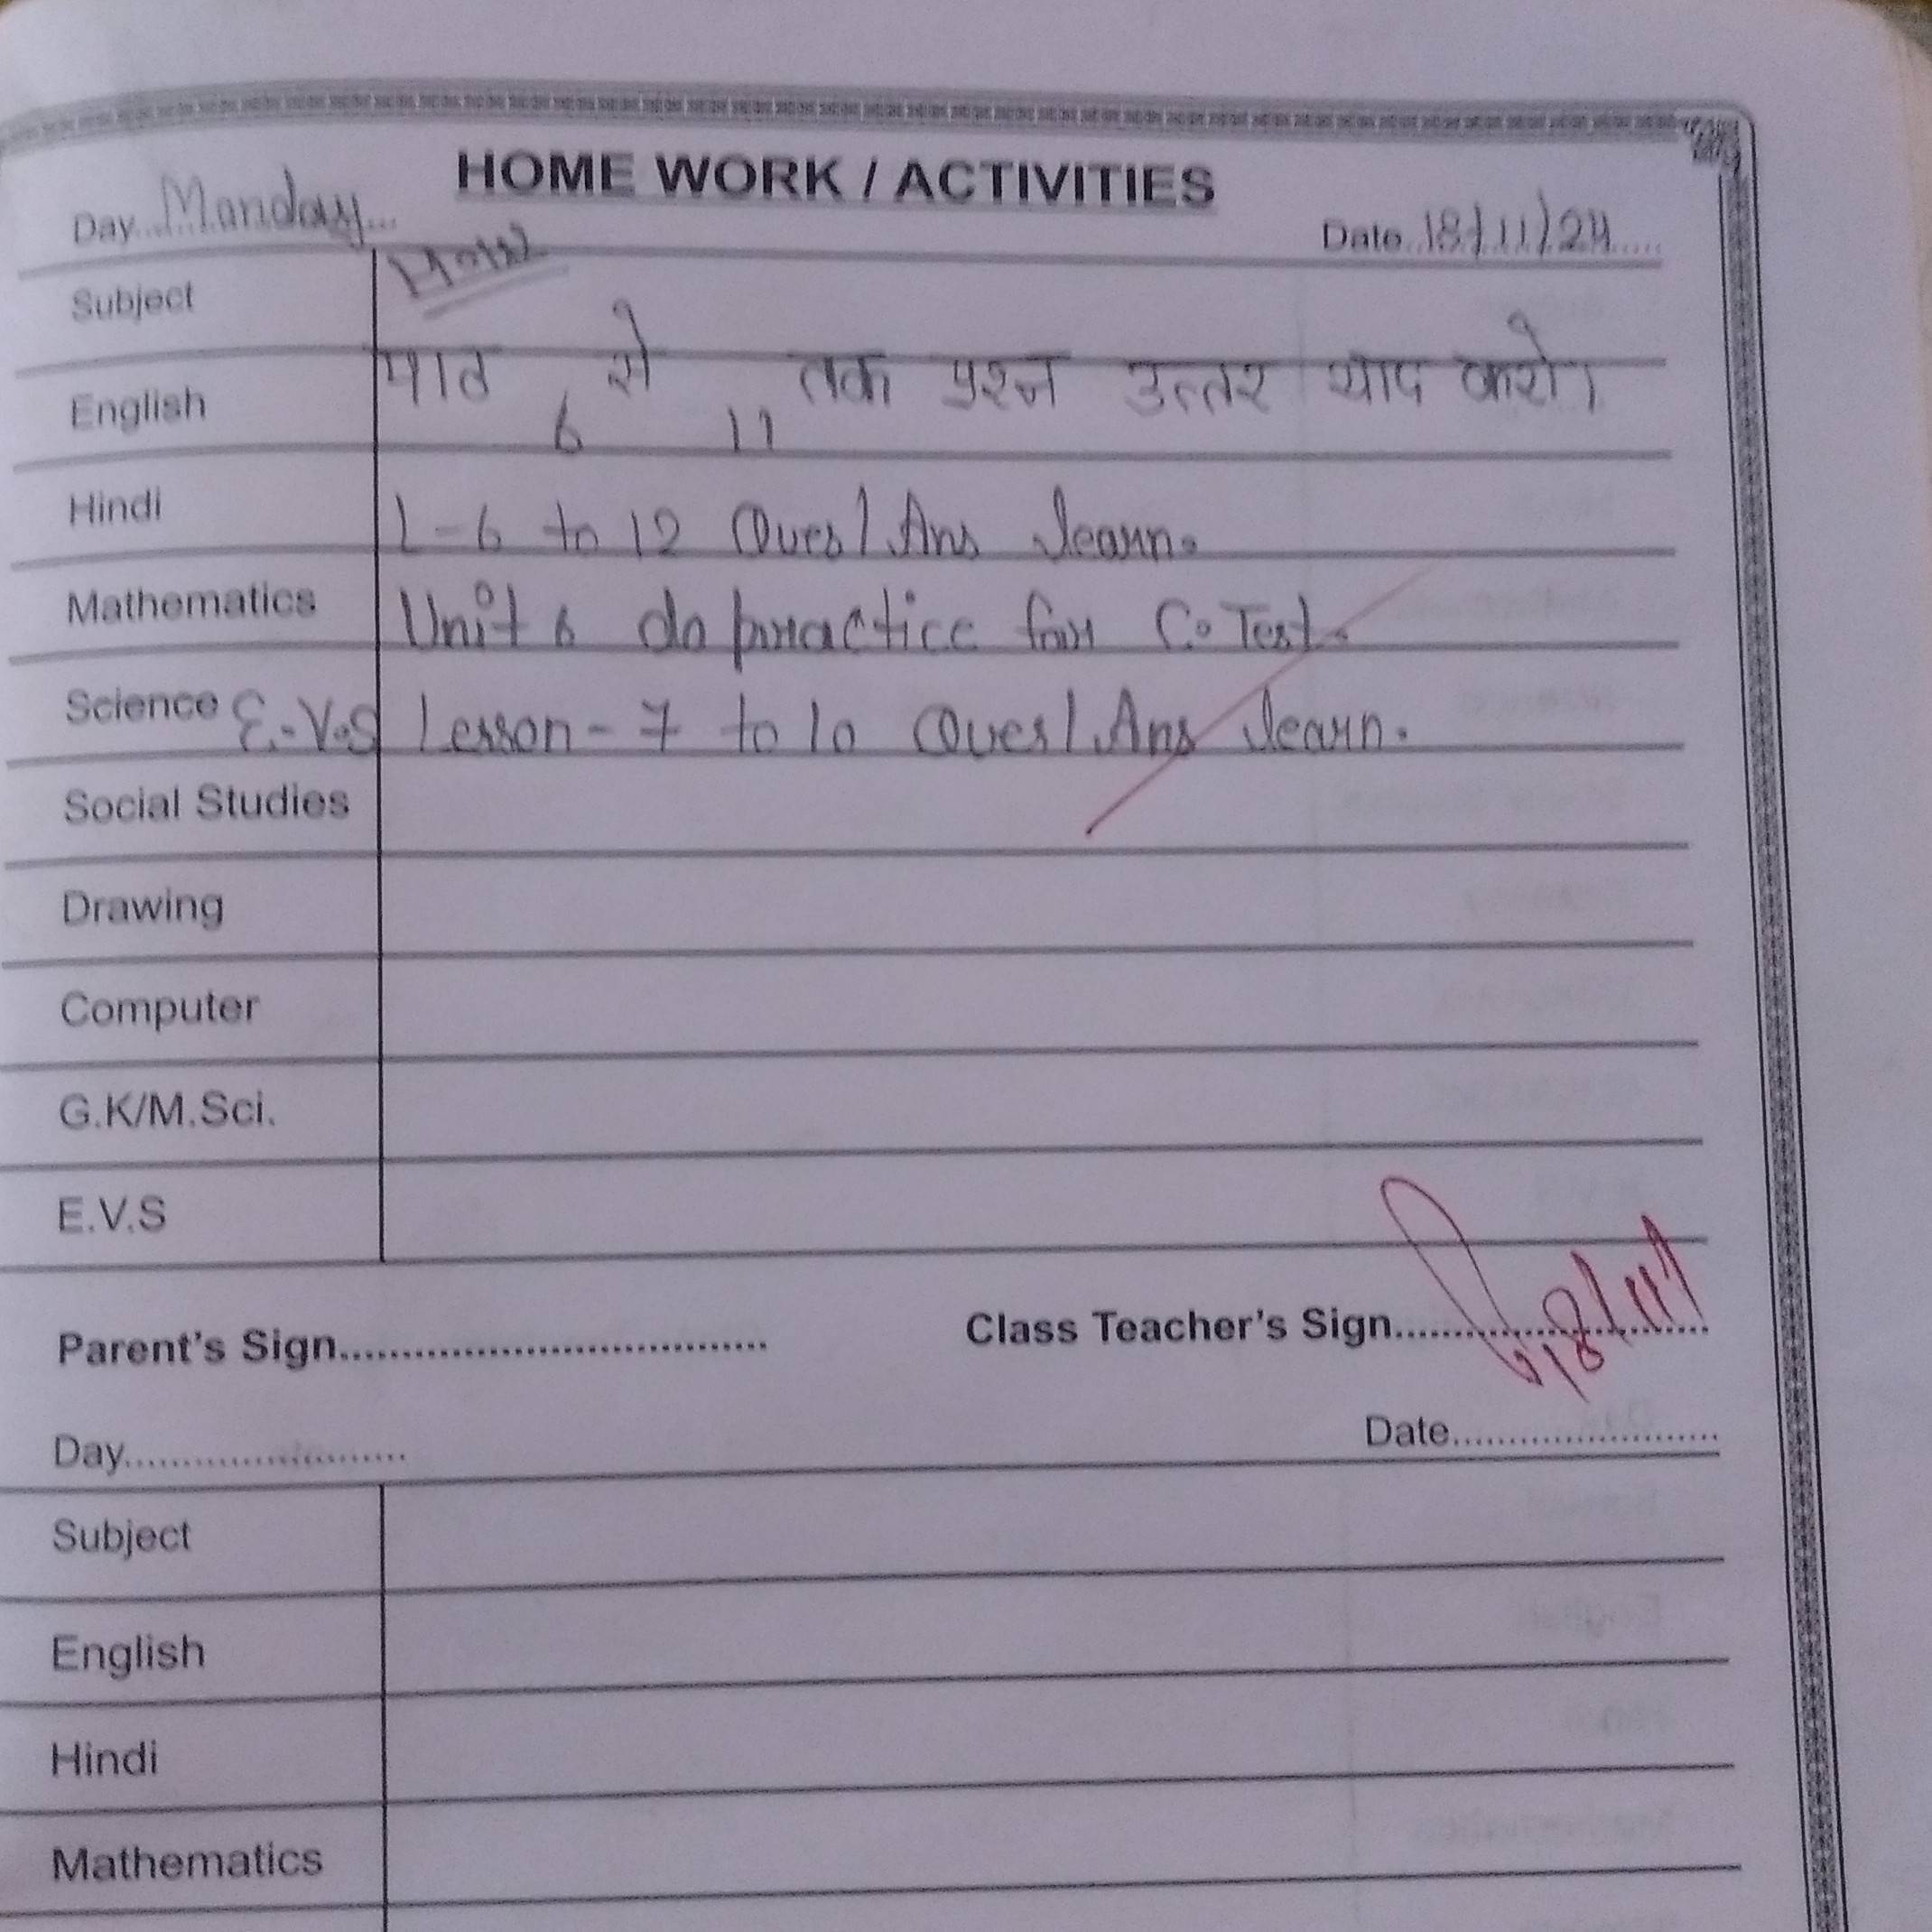 HOME WORK / ACTIVITIES
Day Monday Date 18/11/24
Subject H.W
English पाठ 6 से 11 तक प्रश्न उत्तर याद करो।
Hindi L-6 to 12 Ques/Ans learn.
Mathematics Unit 6 do practice for C. Test.
Science E.V.S Lesson-7 to 10 Ques/Ans learn.
Social Studies
Drawing
Computer
G.K/M.Sci.
E.V.S
Parent's Sign Class Teacher's Sign 18/11/
Day Date
Subject
English
Hindi
Mathematics